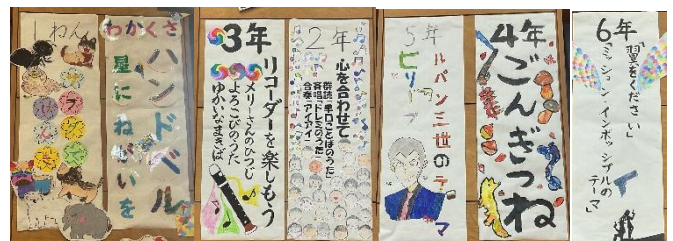 1ねん
わかくさ
ハンドベル
星にねがいを
3年
リコーダーを楽しもう
メリーさんのひつじ
よろこびのうた
ゆかいなまきば
2年
心を合わせて
群読「早口ことばのうた」
斉唱「ドレミのうた」
合奏「アイアイ」
5年
ルパン三世のテーマ
ビリーブ
4年
ごんぎつね
6年
「翼をください」
「ミッション・インポッシブルの
テーマ」